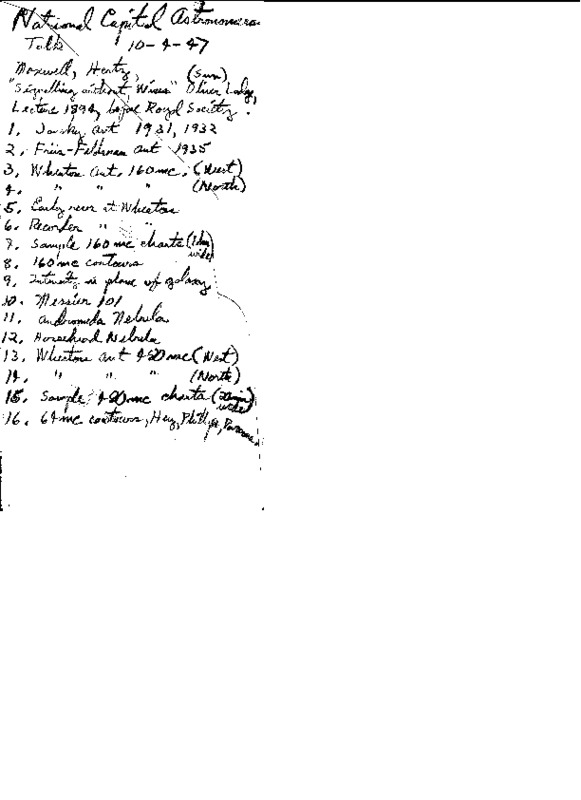 National Capitol Astronomers
Talk 10-4-47
Maxwell, Hertz, (Sun)
"Signalling without Wires" Oliver Lodge,
Lecture 1894, before Royal Society.
1. Jansky ant 1931, 1932
2. Friis-Feldman ant 1935
3. Wheaton ant. 160 mc. (West)
4. " " " (North)
5. Early recvr at Wheaton
6. Recorder " "
7. Sample 160 mc charts ( wide)
8. 160 mc contours
9. Intensity in plane of galaxy
10. Messier 101
11. Andromeda Nebula
12. Horsehead Nebula
13. Wheaton ant 480 mc (West)
14. " " " (North)
15. Sample 480 mc charts ( wide)
16. 64 mc contours, Hey, Phillips, Parsons.